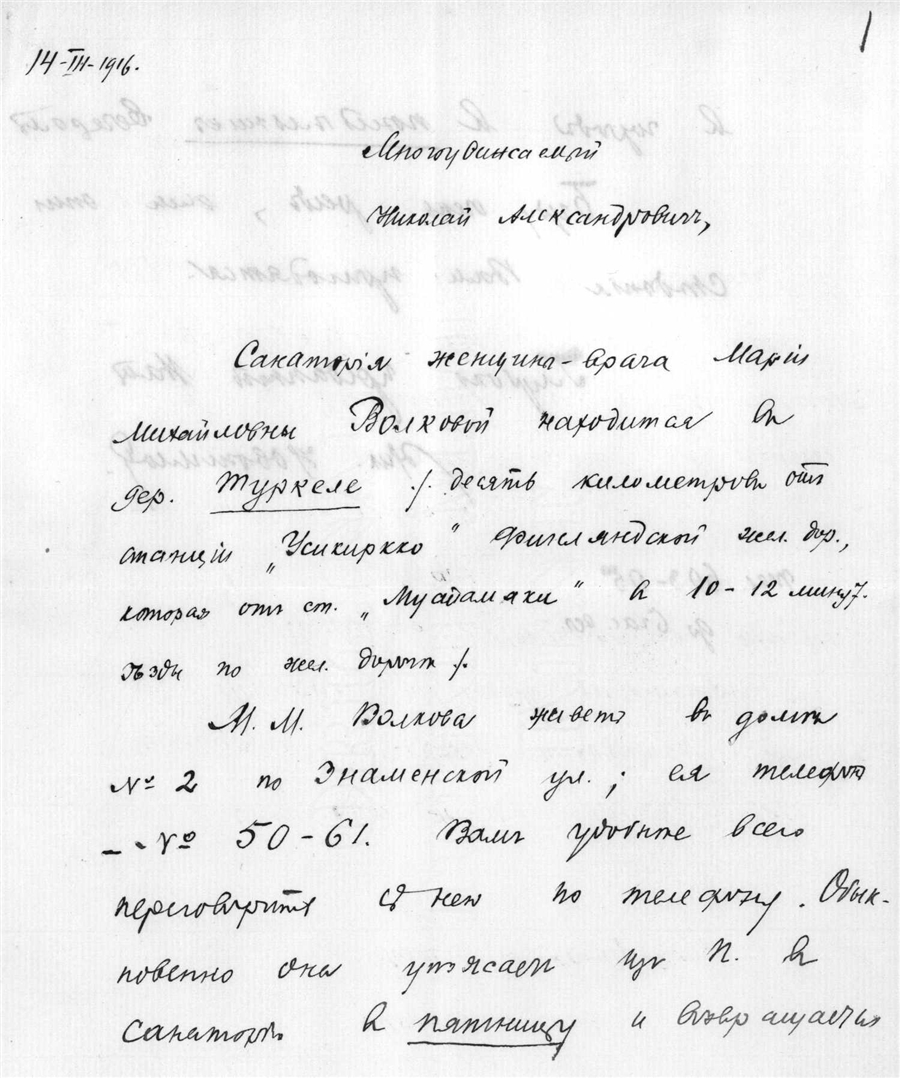 1
14-III-1916.
Многоуважаемый
Николай Александровичъ,
Санаторія женщины-врача Маріи
Михайловны Волковой находится въ
дер. Туркеле /. десять километровъ отъ
станціи „Усикиркко" Финляндской жел. дор.,
которая отъ ст. „Мустамяки" въ 10-12 минут.
ѣзды по жел. дорогѣ /.
М. М. Волкова живетъ въ домѣ
№ 2 по Знаменской ул.; ея телефон
- № 50-61. Вамъ удобнѣе всего
переговорить съ нею по телефону. Обык-
новенно она уѣзжаетъ изъ П. въ
санаторію въ пятницу и возвращается